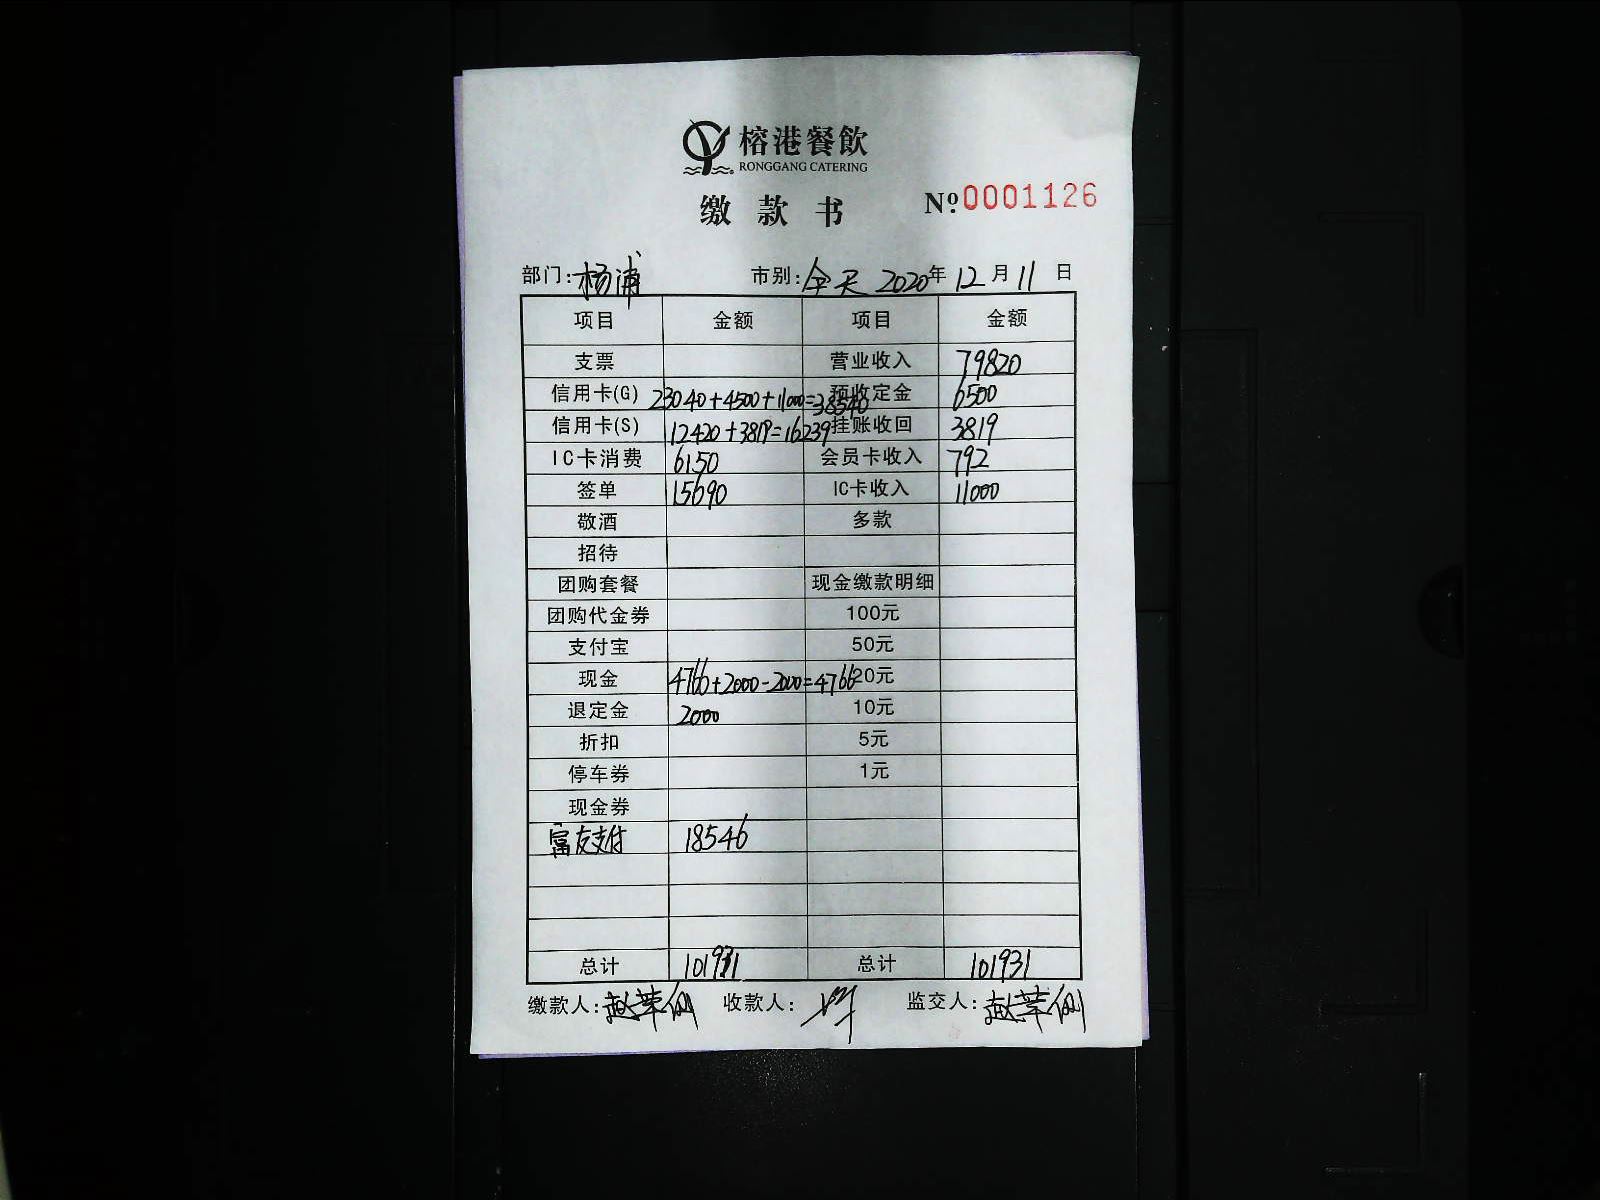 榕港餐飲
RONGGANG CATERING
缴款书 №0001126
部门：杨浦 市别：全天 2020年12月11日
项目 金额 项目 金额
支票 营业收入 79820
信用卡(G) 23040+4500+11000=38540 预收定金 6500
信用卡(S) 12420+3819=16239 挂账收回 3819
IC卡消费 6150 会员卡收入 792
签单 15690 IC卡收入 11000
敬酒 多款
招待
团购套餐 现金缴款明细
团购代金券 100元
支付宝 50元
现金 4766+2000-2000=4766 20元
退定金 2000 10元
折扣 5元
停车券 1元
现金券
富友支付 18546
总计 101931 总计 101931
缴款人： 收款人： 监交人：